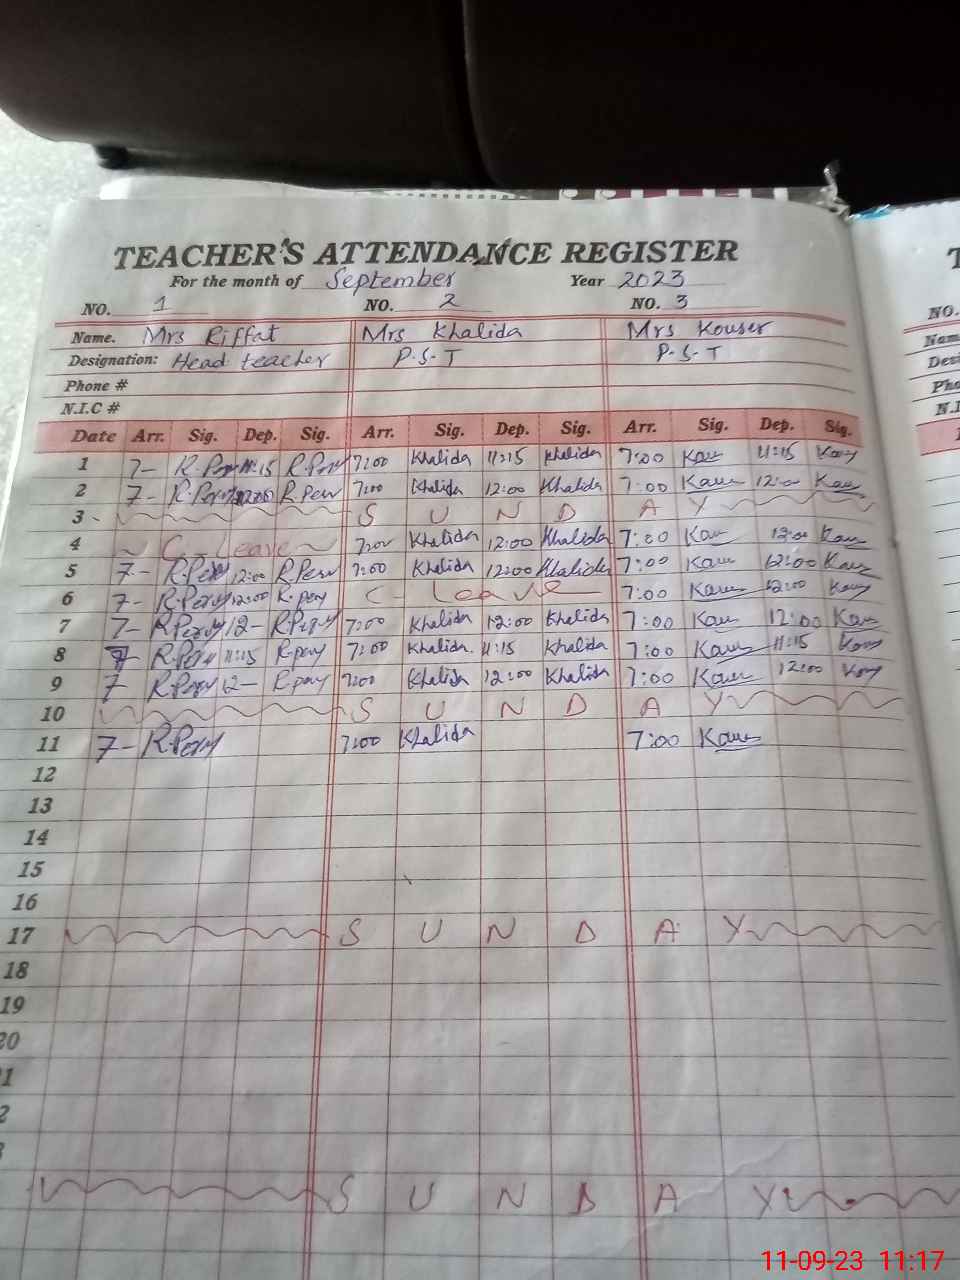 TEACHER'S ATTENDANCE REGISTER
For the month of September Year 2023
NO. 1 NO. 2 NO. 3
Name. Mrs Riffat Mrs Khalida Mrs Kouser
Designation: Head teacher P.S.T P.S.T
Phone #
N.I.C #
Date Arr. Sig. Dep. Sig. Arr. Sig. Dep. Sig. Arr. Sig. Dep. Sig.
1 7- 11:15 7:00 Khalida 11:15 Khalida 7:00 11:15
2 7- 7:00 Khalida 12:00 Khalida 7:00 12:00
3 S U N D A Y
4 C-Leave 7:00 Khalida 12:00 Khalida 7:00 12:00
5 7- 12:00 7:00 Khalida 12:00 Khalida 7:00 12:00
6 7- 12:00 C-Leave 7:00 12:00
7 7- 12- 7:00 Khalida 12:00 Khalida 7:00 12:00
8 7- 11:15 7:00 Khalida. 11:15 Khalida 7:00 11:15
9 7 12- 7:00 Khalida 12:00 Khalida 7:00 12:00
10 S U N D A Y
11 7- 7:00 Khalida 7:00
12
13
14
15
16
17 S U N D A Y
18
19
20
1
2
S U N D A Y
NO.
Phо
N.I
11-09-23 11:17